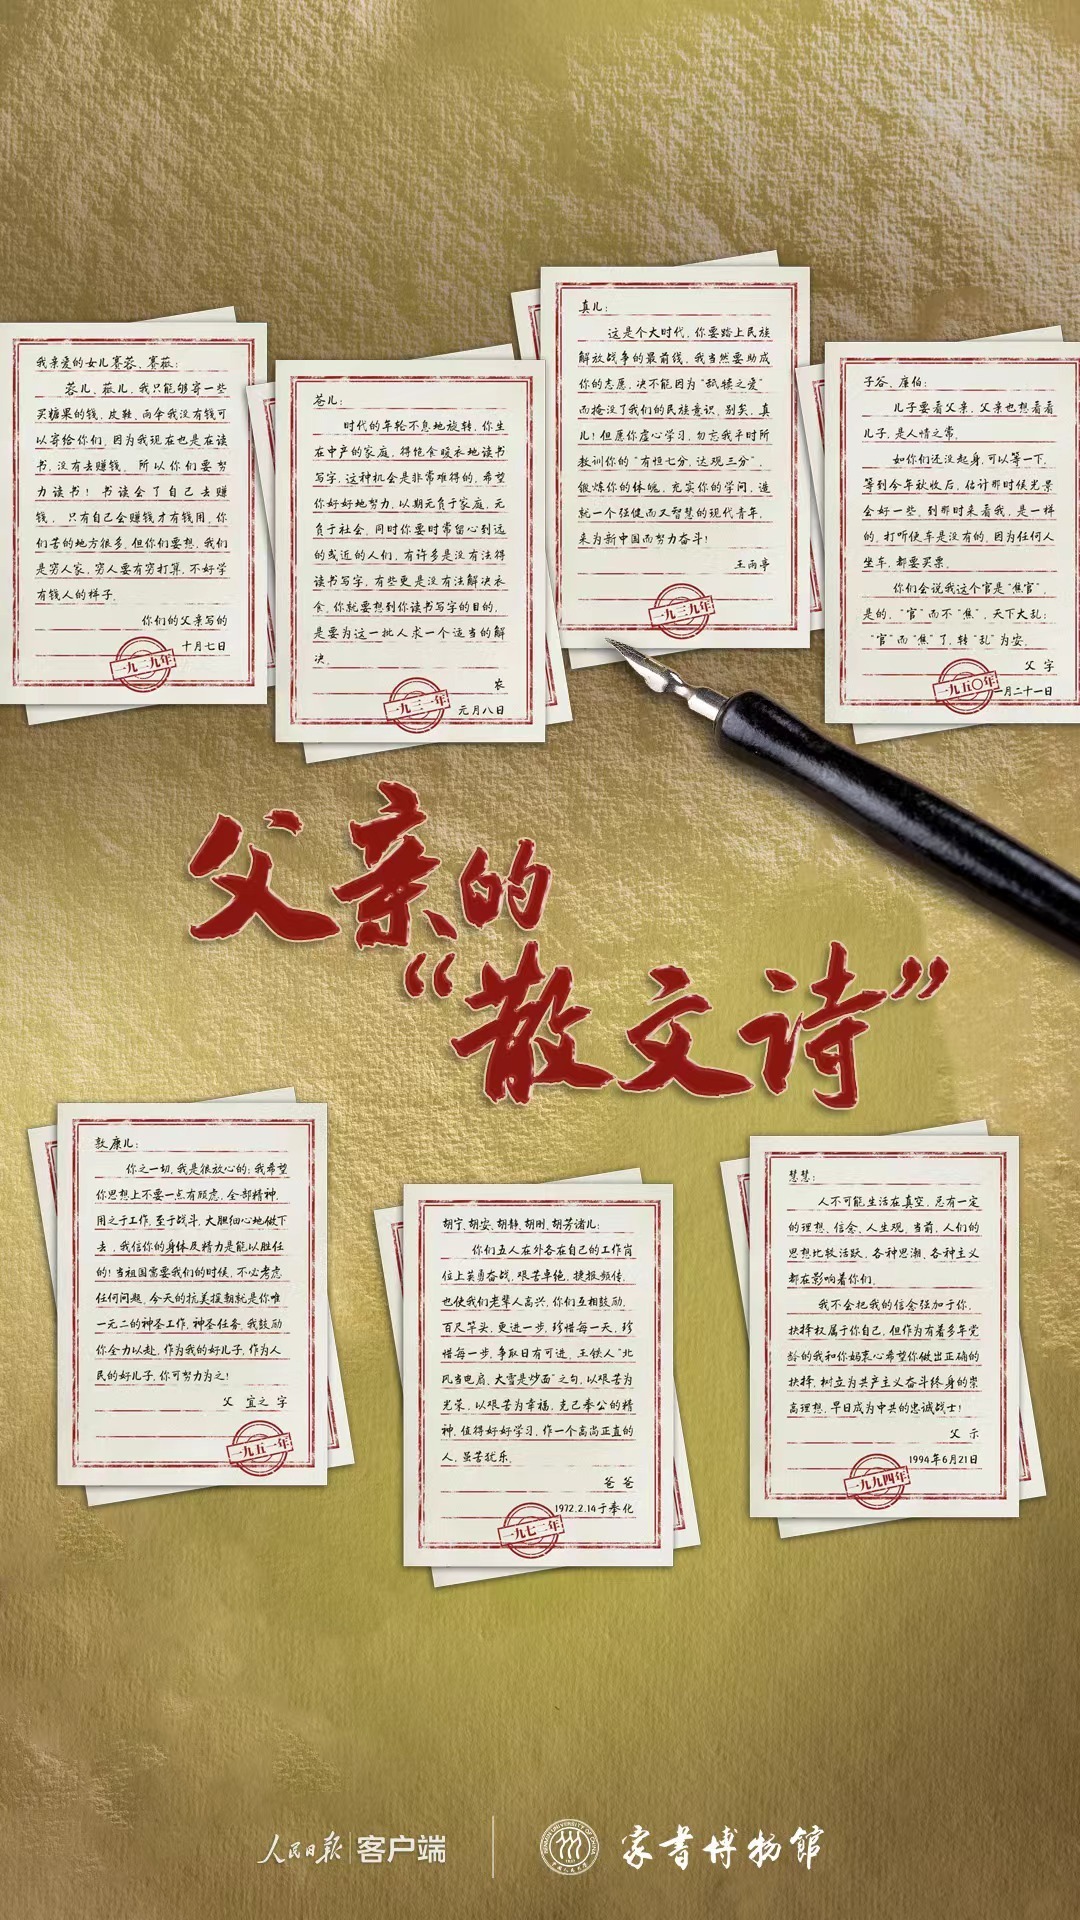 我亲爱的女儿赛蓉、赛菰:
蓉儿、菰儿,我只能够寄一些
买糖果的钱,皮鞋、雨伞我没有钱可
以寄给你们,因为我现在也是在读
书,没有去赚钱。所以你们要努
力读书!书读会了自己去赚
钱。只有自己会赚钱才有钱用,你
们苦的地方很多,但你们要想,我们
是穷人家,穷人要有穷打算,不好学
有钱人的样子。
你们的父亲写的
十月七日
一九二九年
苍儿:
时代的年轮不息地旋转,你生
在中产的家庭,得饱食暖衣地读书
写字,这种机会是非常难得的,希望
你好好地努力,以期无负于家庭,无
负于社会,同时你要时常留心到远
的或近的人们,有许多是没有法得
读书写字,有些更是没有法解决衣
食,你就要想到你读书写字的目的,
是要为这一批人求一个适当的解
决。
农
元月八日
一九三一年
真儿:
这是个大时代,你要踏上民族
解放战争的最前线,我当然要助成
你的志愿,决不能因为“舐犊之爱”
而掩没了我们的民族意识,别矣,真
儿!但愿你虚心学习,勿忘我平时所
教训你的“有恒七分,达观三分”,
锻炼你的体魄,充实你的学问,造
就一个强健而又智慧的现代青年,
来为新中国而努力奋斗!
王雨亭
一九三九年
子谷、廑伯:
儿子要看父亲,父亲也想看看
儿子,是人情之常。
如你们还没起身,可以等一下,
等到今年秋收后,估计那时候光景
会好一些,到那时来看我,是一样
的。打听便车是没有的,因为任何人
坐车,都要买票。
你们会说我这个官是“焦官”,
是的,“官”而不“焦”,天下大乱;
“官”而“焦”了,转“乱”为安。
父 字
一月二十一日
一九五〇年
父亲的
“散文诗”
敦康儿:
你之一切,我是很放心的;我希望
你思想上不要一点有顾虑,全部精神,
用之于工作,至于战斗,大胆细心地做下
去,我信你的身体及精力是能以胜任
的!当祖国需要我们的时候,不必考虑
任何问题,今天的抗美援朝就是你唯
一无二的神圣工作,神圣任务,我鼓励
你全力以赴,作为我的好儿子,作为人
民的好儿子,你可努力为之!
父 宜之 字
一九五一年
胡宁、胡安、胡静、胡刚、胡芳诸儿:
你们五人在外各在自己的工作岗
位上英勇奋战,艰苦卓绝,捷报频传,
也使我们老辈人高兴,你们互相鼓励,
百尺竿头,更进一步,珍惜每一天,珍
惜每一步,争取日有可进。王铁人“北
风当电扇,大雪是炒面”之句,以艰苦为
光荣,以艰苦为幸福,克己奉公的精
神,值得好好学习,作一个高尚正直的
人,虽苦犹乐。
爸爸
1972.2.14于奉化
一九七二年
慧慧:
人不可能生活在真空,总有一定
的理想、信念、人生观。当前,人们的
思想比较活跃,各种思潮、各种主义
都在影响着你们。
我不会把我的信念强加于你,
抉择权属于你自己,但作为有着多年党
龄的我和你妈衷心希望你做出正确的
抉择,树立为共产主义奋斗终身的崇
高理想,早日成为中共的忠诚战士!
父 示
1994年6月21日
一九九四年
人民日报 客户端
家书博物馆